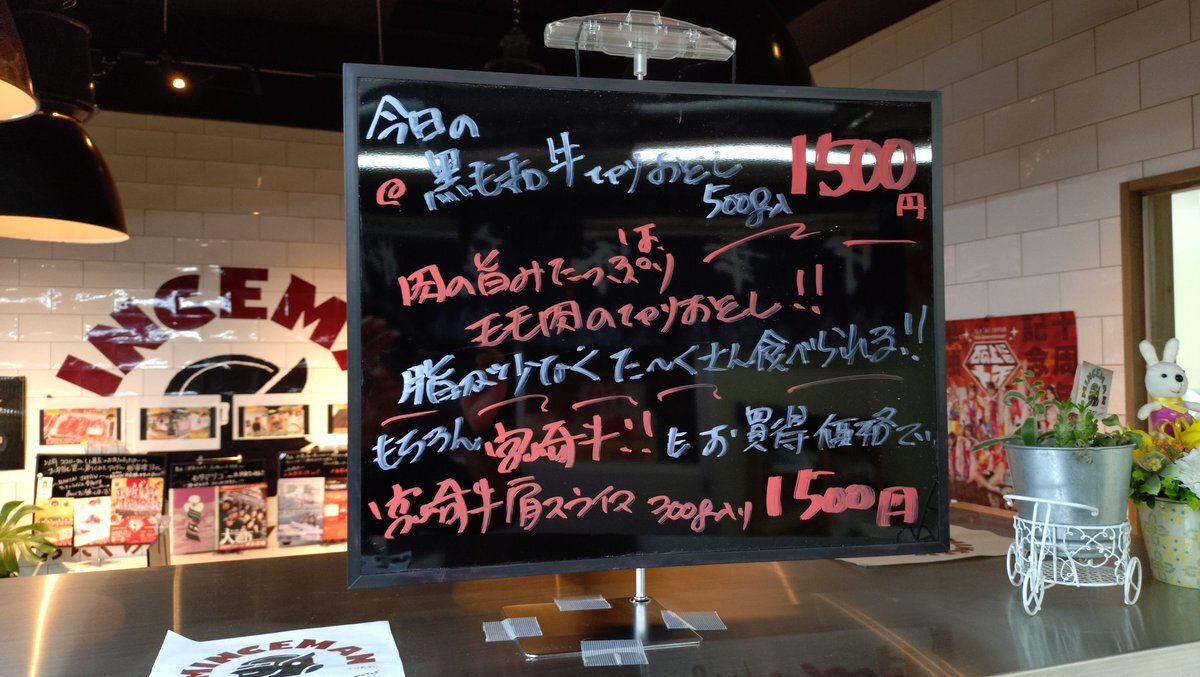 今日の
黒毛和牛切りおとし
500g入
1500
円
は、
肉の旨みたっぷり
モモ肉の切りおとし!!
脂が少なくた〜くさん食べられる!!
もちろん、宮崎牛!!もお買得価格で、
宮崎牛肩スライス 300g入り 1500円
MINCEMAN
MINCEMAN
十周年
記念